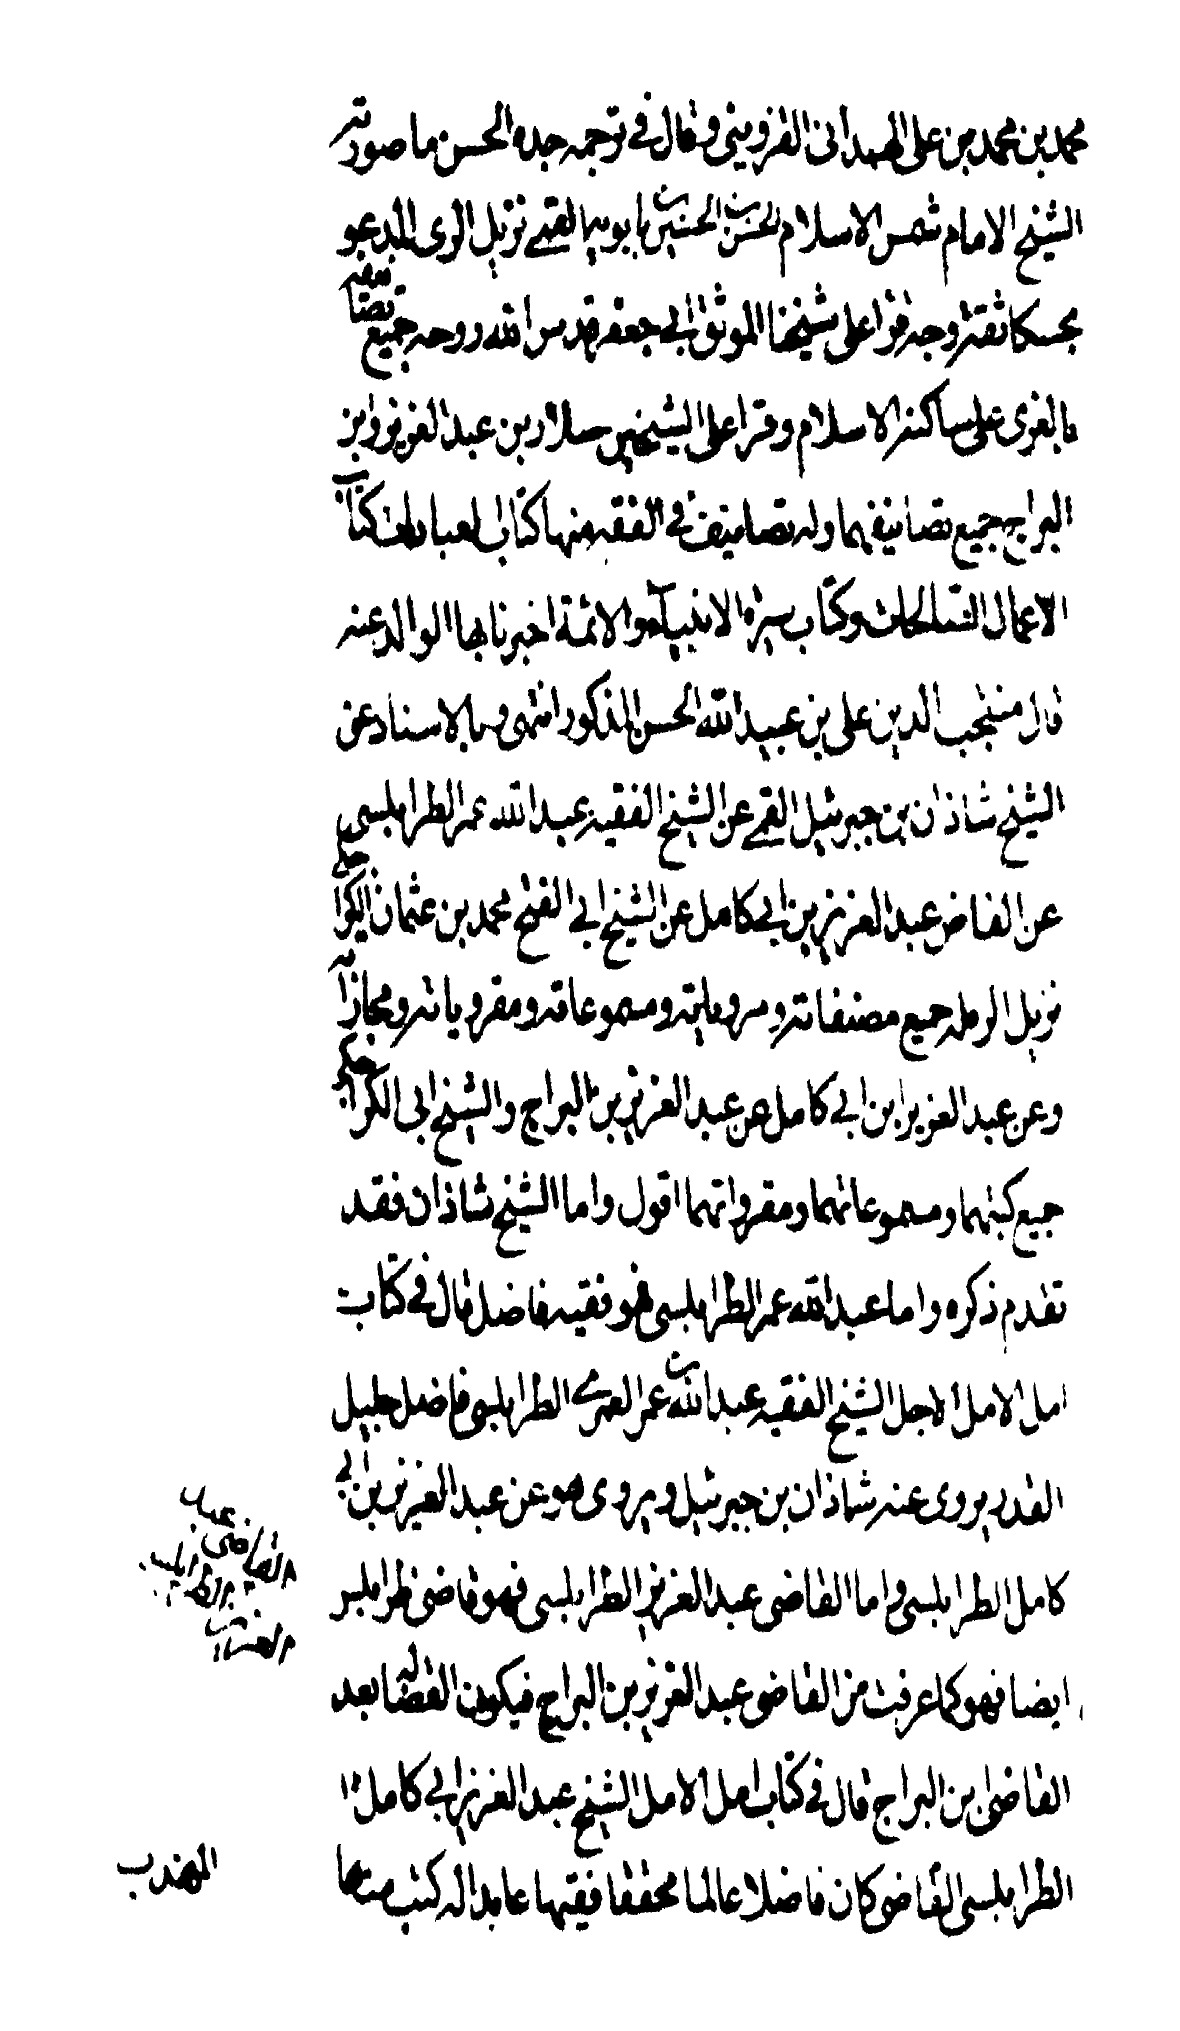 محمد بن محمد بن على الهمدانى القزوينى وقال في ترجمه جده الحسن ما صورته
الشيخ الامام شمس الاسلام الحسن بن الحسين بن بابويه القمى نزيل الرى المدعو
بحسكا ثقة وجه قرا على شيخنا الموثق ابي جعفر قدس الله روحه جميع تصانيفه
بالغرى على ساكنه الاسلام وقرا على الشيخين سلار بن عبد العزيز وابن
البراج جميع تصانيفهما وله تصانيف في الفقه منها كتاب العبادات كتاب
الاعمال الصالحات وكتاب سيرة الانبياء والائمة اخبرنا بها الوالد عنه
قال منتجب الدين على بن عبيد الله الحسن المذكور انتهى وبالاسناد عن
الشيخ شاذان بن جبرئيل القمى عن الشيخ الفقيه عبد الله عمر الطرابلسى
عن القاضى عبد العزيز بن ابي كامل عن الشيخ ابي الفتح محمد بن عثمان الكراجكى
نزيل الرمله جميع مصنفاته ومروياته ومسموعاته ومقروياته ومجازاته
وعن عبد العزيز ابن ابي كامل عن عبد العزيز بن البراج والشيخ ابى الكراجكى
جميع كتبهما ومسموعاتهما ومقرواتهما اقول واما الشيخ شاذان فقد
تقدم ذكره واما عبد الله عمر الطرابلسى فهو فقيه فاضل قال في كتاب
امل الامل الاجل الشيخ الفقيه عبد الله بن عمر العمرى الطرابلسى فاضل جليل
القدر يروى عنه شاذان بن جبرئيل ويروى هو عن عبد العزيز بن ابي
كامل الطرابلسى واما القاضى عبد العزيز الطرابلسى فهو قاضى طرابلس
ايضا فهو كما عرفت من القاضى عبد العزيز بن البراج فيكون القضا له بعد
القاضى ابن البراج قال في كتاب امل الامل الشيخ عبد العزيز ابي كامل
الطرابلسى القاضى كان فاضلا عالما محققا فقيها عابدا له كتب منها
المهذب
القاضى عبد